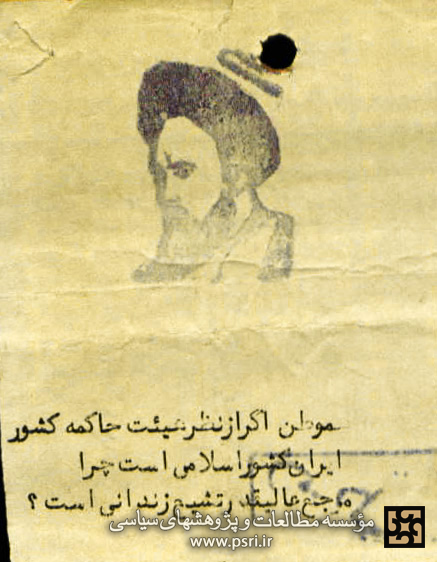 هموطن اگر از نظر هیئت حاکمه کشور
ایران کشور اسلامی است چرا
مرجع عالیقدر تشیع زندانی است ؟
مؤسسه مطالعات و پژوهشهای سیاسی
www.psri.ir